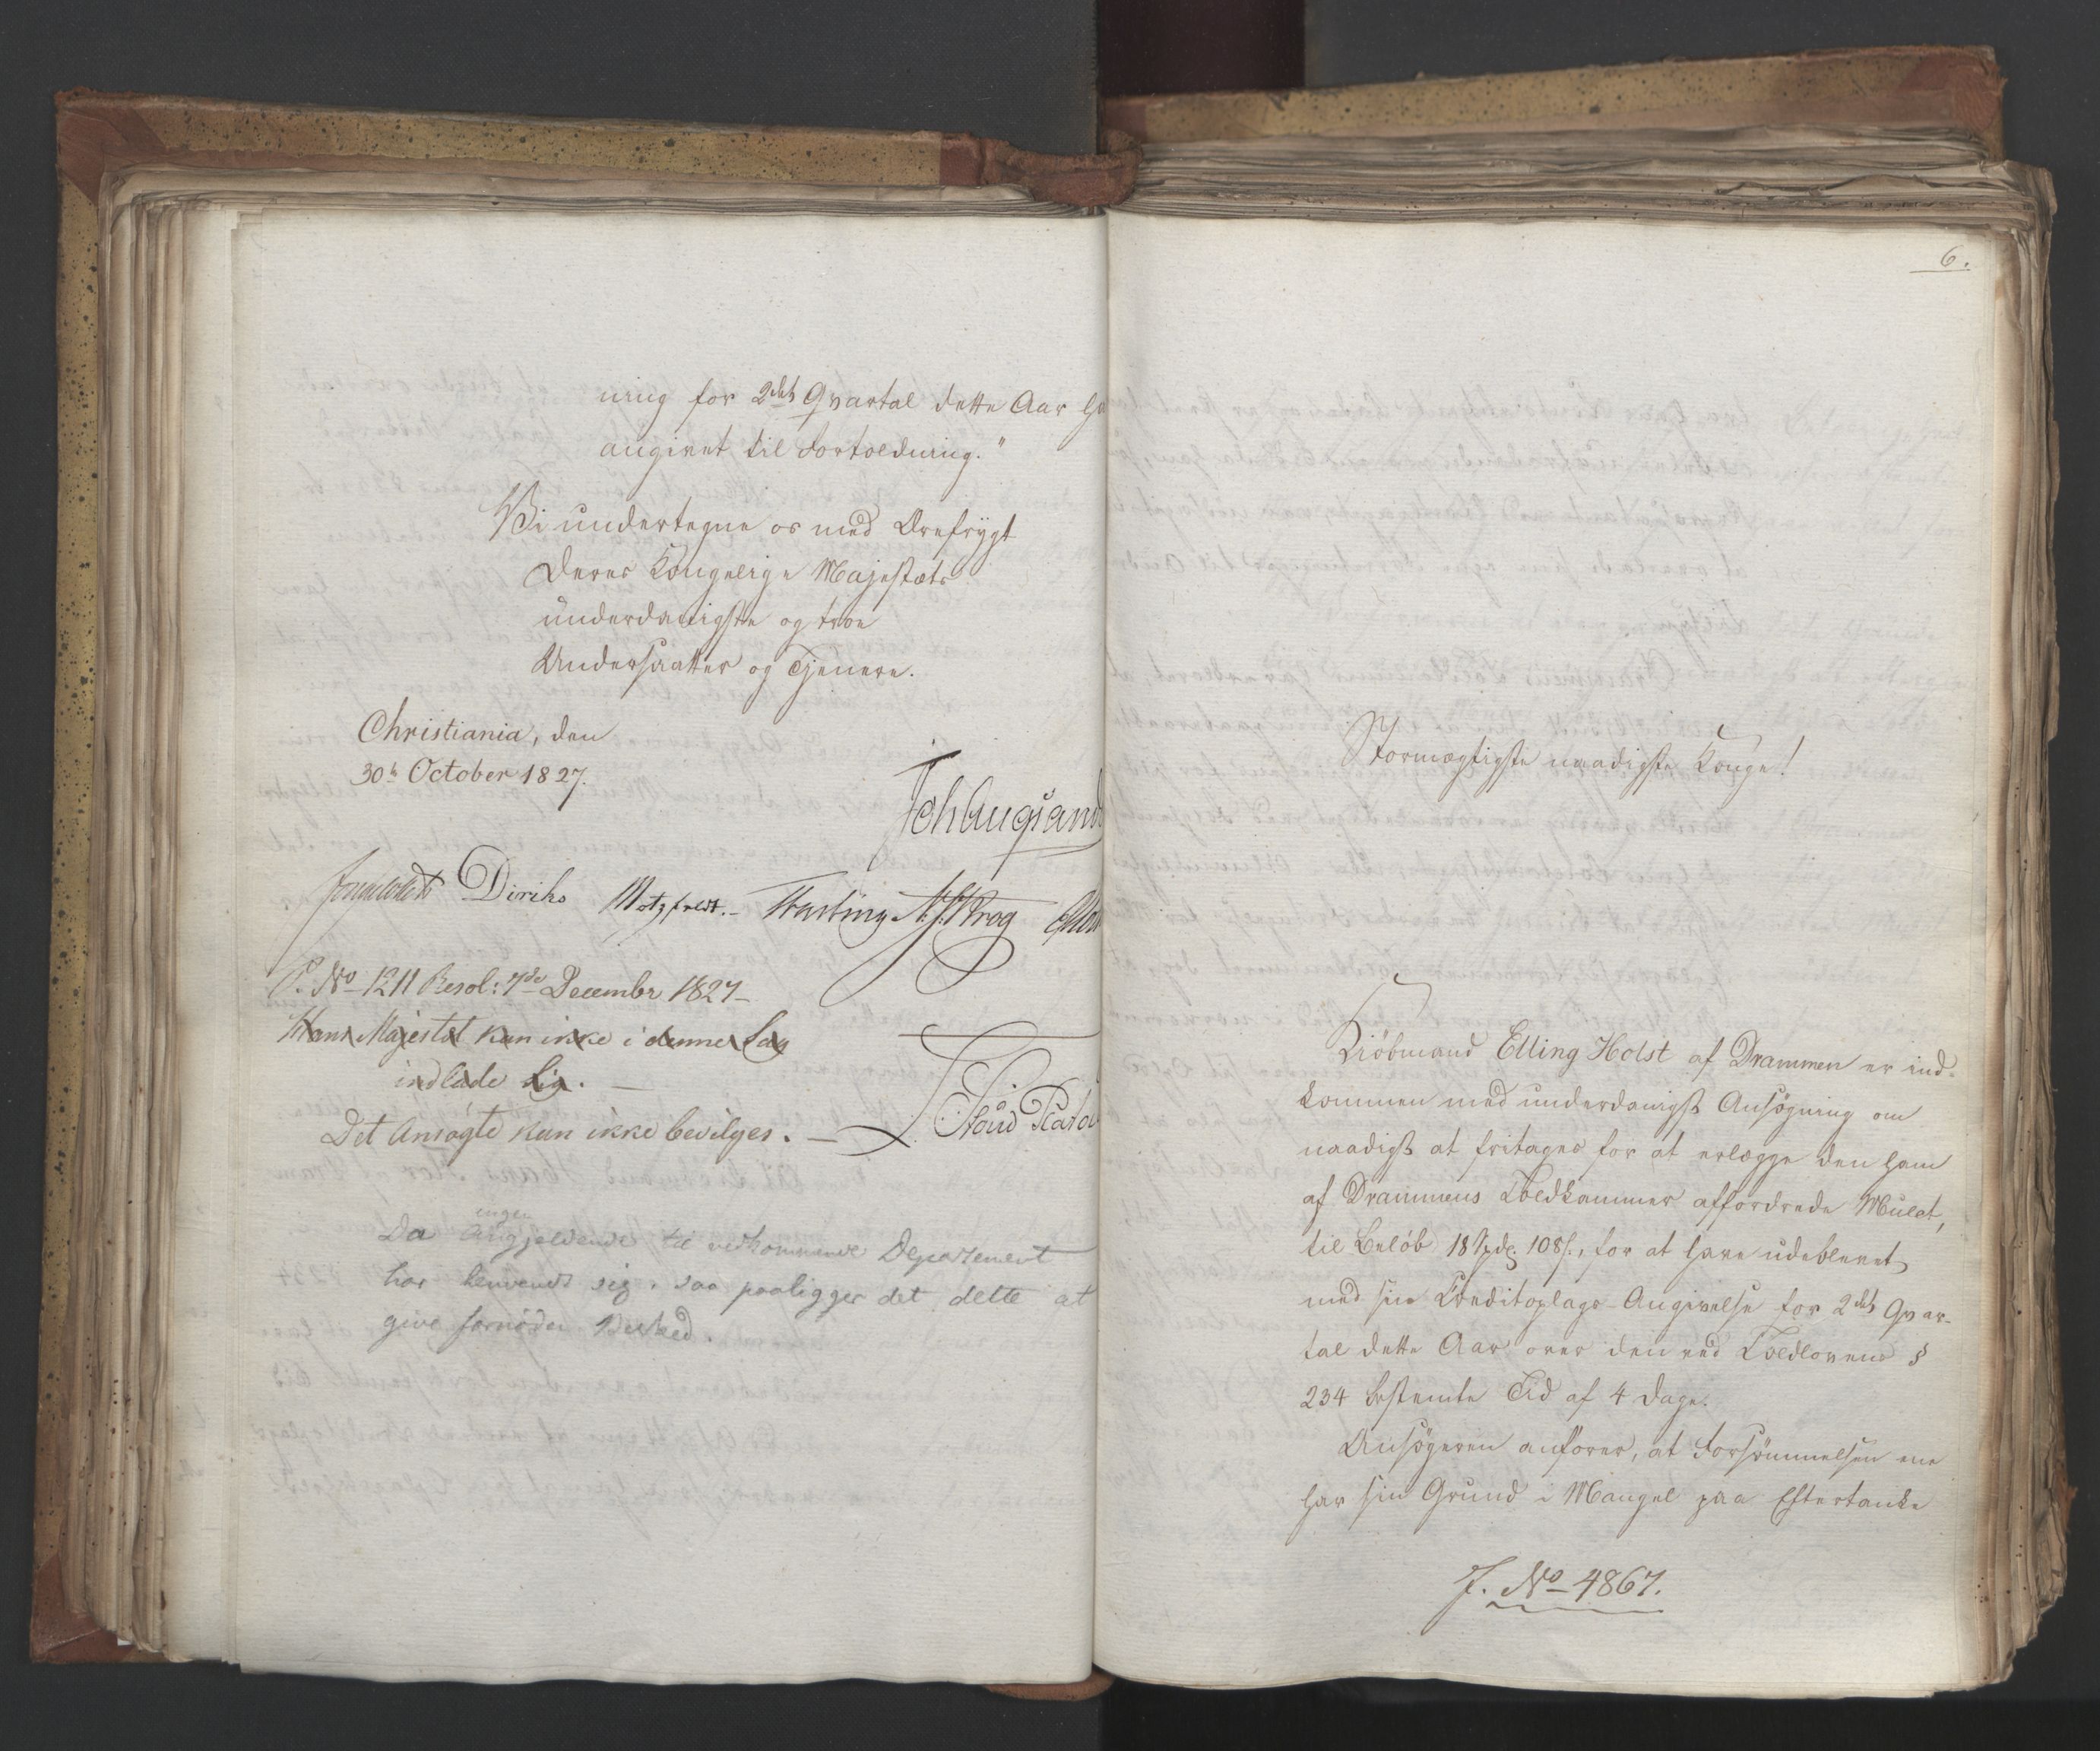 ning for 2det Qvartal dette Aar ha
angivet til Fortoldning."
Vi undertegne os med Ærefrygt
Deres Kongelige Majestæts
underdanigste og troe
Undersaatter og Tjenere.
Christiania, den
30te October 1827.
JohAugSand
Diriks Motzfeldt. Fasting Krog
P. No 1211 Resol: 7de Decembr 1827
Hans Majestæt kan ikke i denne Sag
indlade sig.
Det Ansøgte kan ikke bevilges.
ingen
Da Angjeldende til vedkommende Departement
har henvendt sig, saa paaligger det dette at
give fornøden Besked.
6.
Stormægtigste naadigste Konge!
Kiøbmand Elling Holst af Drammen er ind-
kommen med underdanigst Ansøgning om
naadigst at fritages for at erlægge den ham
af Drammens Toldkammer affordrede Mulct,
til Beløb 18 Spd. 108 s., for at have udeblevet
med sin Creditoplags-Angivelse for 2det Qvar-
tal dette Aar over den ved Toldlovens §
234 bestemte Tid af 4 Dage.
Ansøgeren anfører, at Forsømmelsen ene
har sin Grund i Mangel paa Eftertanke
J. No 4867.